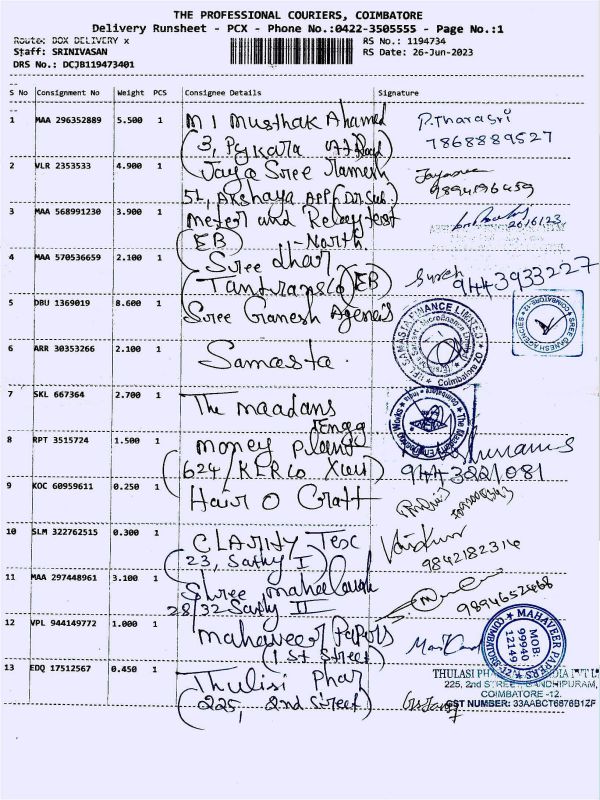 THE PROFESSIONAL COURIERS, COIMBATORE
Delivery Runsheet - PCX - Phone No.:0422-3505555 - Page No.:1
Route: BOX DELIVERY x
RS No.: 1194734
Staff: SRINIVASAN
RS Date: 26-Jun-2023
DRS No.: DCJB119473401
S No Consignment No Weight PCS Consignee Details Signature
1 MAA 296352889 5.500 1 M I Musthak Ahamed P.Tharasri
(3, Pykara 7868889527
2 VLR 2353533 4.900 1 Jaya Sree Ramesh
51, Akshaya App 9894196459
3 MAA 568991230 3.900 1 Meter and Relay test
(EB) - North.
4 MAA 570536659 2.100 1 Sree dhar Suresh
(Tantransco) (EB) 9443933227
5 DBU 1369019 8.600 1 Sree Ganesh Agencies
SREE GANESH AGENCIES
COIMBATORE-12
IIFL SAMASTA FINANCE LIMITED
Coimbatore ZO
6 ARR 30353266 2.100 1 Samasta.
7 SKL 667364 2.700 1 The maadans
Engg
The Maadans Engineering Works
8 RPT 3515724 1.500 1 Money plant
(624/ 9443221081
9 KOC 60959611 0.250 1 Hair O Craft
10 SLM 322762515 0.300 1 CLARITY Tex
(23, Sathy I) 9842182314
11 MAA 297448961 3.100 1 Shree
28/32 Sathy II 9894652468
12 VPL 944149772 1.000 1 Mahaveer Papers
(1st Street)
MAHAVEER PAPERS
COIMBATORE-12
MOB:
99940
12149
13 EDQ 17512567 0.450 1 Thulisi Phar
(225, 2nd Street)
THULASI
225, 2nd STREET, GANDHIPURAM,
COIMBATORE -12.
GST NUMBER: 33AABCT6676B1ZF